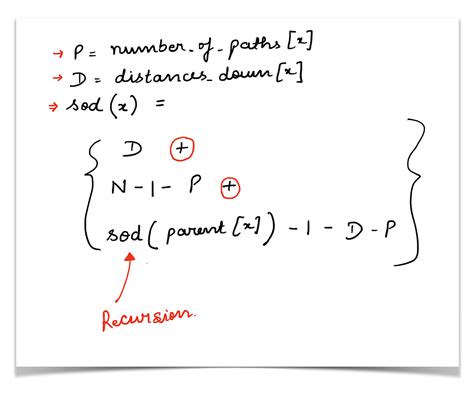 → P = number_of_paths[x]
→ D = distances_down[x]
→ sod(x) =
D +
N - 1 - P +
sod(parent[x]) - 1 - D - P
Recursion.